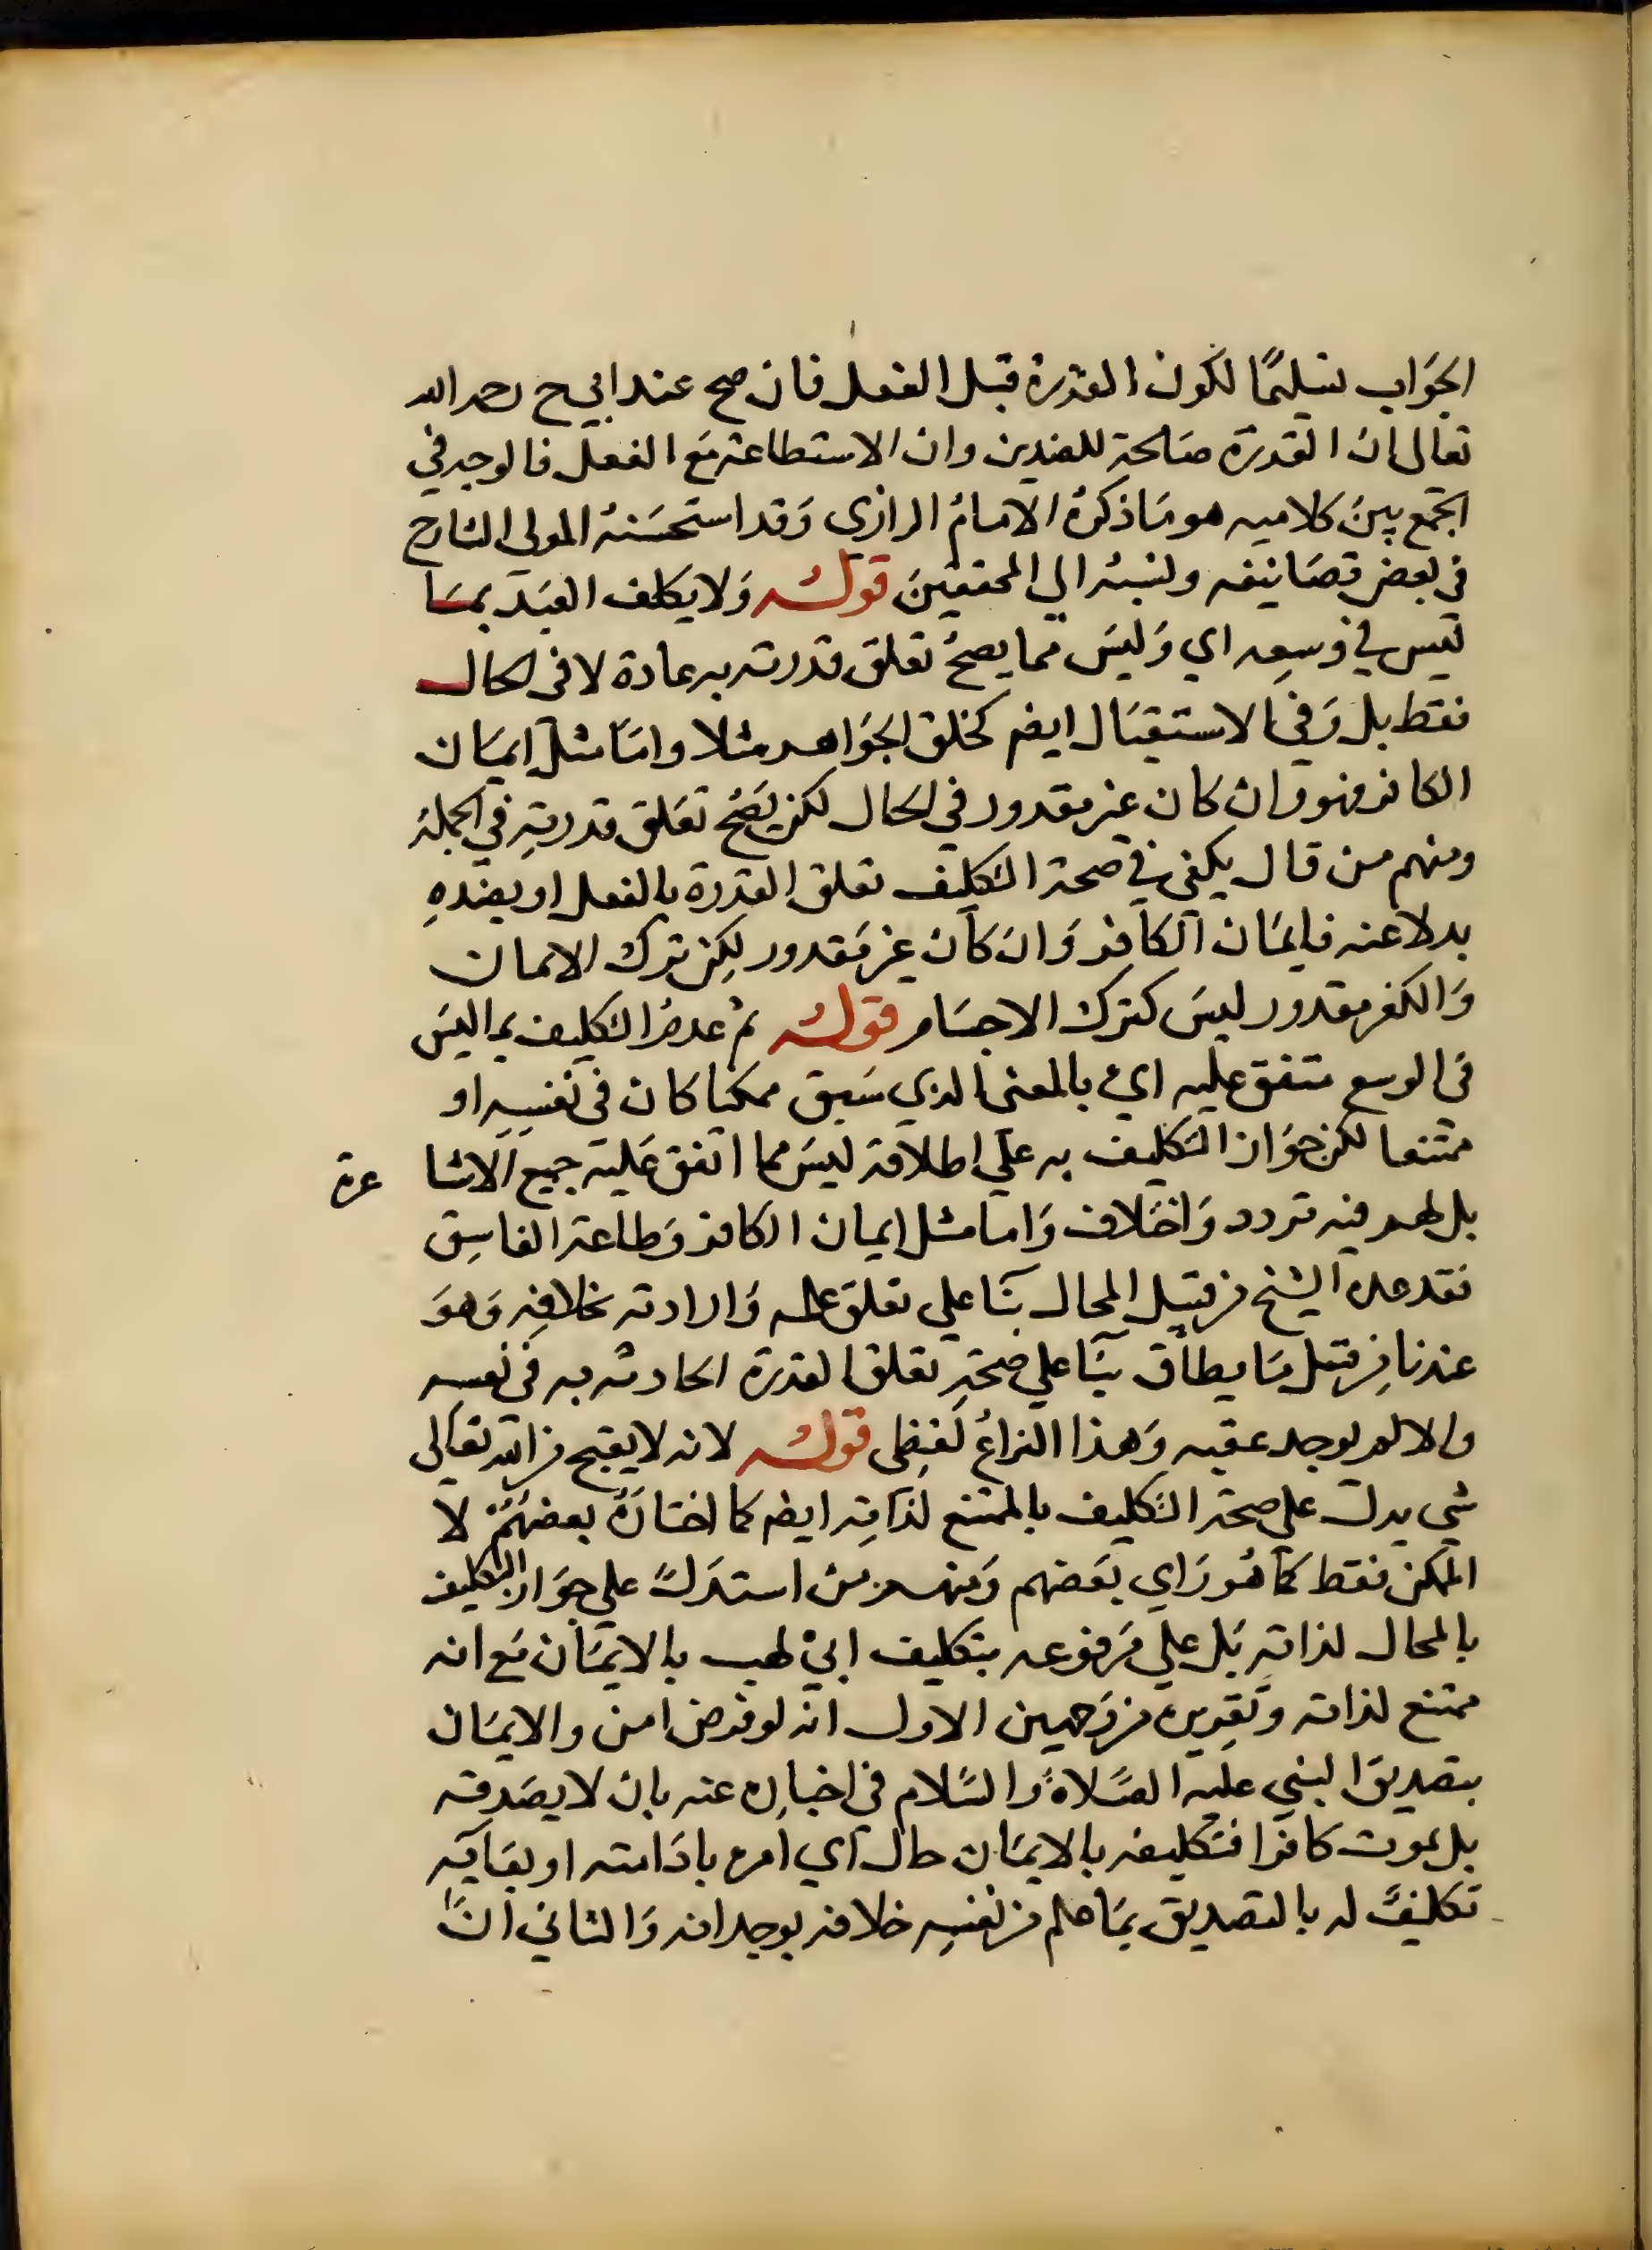 الجَوَاب تسليمًا لكون القدرة قبل الفعل فان صح عند ابي ح رحمه الله
تعالى ان القدرة صَالحة للضدين وان الاستطاعة مَع الفعل فالوجه في
الجَمع بينَ كلاميه هو مَا ذكرهُ الامَامُ الرازى وَقد استحسَنهُ المولي الشارح
في بعض تصَانيفه ونسبه الي المحققينَ قوله وَلا يكلف العَبد بمَا
ليس في وسعِه اي وَليسَ مما يصحُ تعلق قدرته به عادة لا فى الحال
فقط بل وَفي الاستقبَال ايضم كخلق الجَوَاهر مثلا وامَا مثل ايمَان
الكافر فهو وان كان غير مقدور في الحال لكن يَصحُ تعَلق قدرتِه في الجملة
ومنهم من قال يكفي في صحة التكليف تعلق القدرة بالفعل او بضدهِ
بدلا عنه فايمَان الكافر وَان كان غير مَقدور لكِن ترك الايمان
وَالكفر مقدور ليسَ كترك الاجسَام قوله ثم عدمُ التكليف بما ليسَ
فى الوسع متفق عليه اي بالمعنى الذي سَبق ممكنا كان في نفسِه او
ممتنعا لكن جوَاز التكليف به علي اطلاقه ليسَ مما اتفق عَليه جميع الاشا عرة
بل لهم فيه تردد وَاختلاف وَاما مثل ايمان الكافر وَطاعة الفاسِق
فقد عده الشيخ من قبيل المحال بنَا علي تعلق علمه وَارادته بخلافِه وَهوَ
عندنا مِن قبيل مَا يطاق بنَا علي صحةِ تعلق القدرة الحادثه به في نفسه
والا لم يوجد عقيبه وَهذا النزاعُ لفظِى قوله لانه لا يقبح من الله تعَالى
شي يدل علي صحة التكليف بالممتنع لذاتِه ايضم كما اختارَهُ بعضهُمْ لا
الممكن فقط كما هُو رَاي بَعَضهم وَمنهم من استدَلَ علي جوَاز التكليف
بالمحال لذاته بَل علي وَقوعه بتكليف ابي لهب بالايمَان مَع انه
ممتنع لذاته وَتقِريره من وَجهين الاول انه لو فرض امن والايمَان
بتصديق النبي عليه الصَلاةُ والسَلام في اخباره عنه بان لا يصَدقه
بل يموت كافرا فتكليفه بالايمَان حال اي امره بادَامته او بقَايِه
تكليفٌ له بالتصديق بمَا علم من نفسِه خلافه بوجدانه وَالثاني انَ